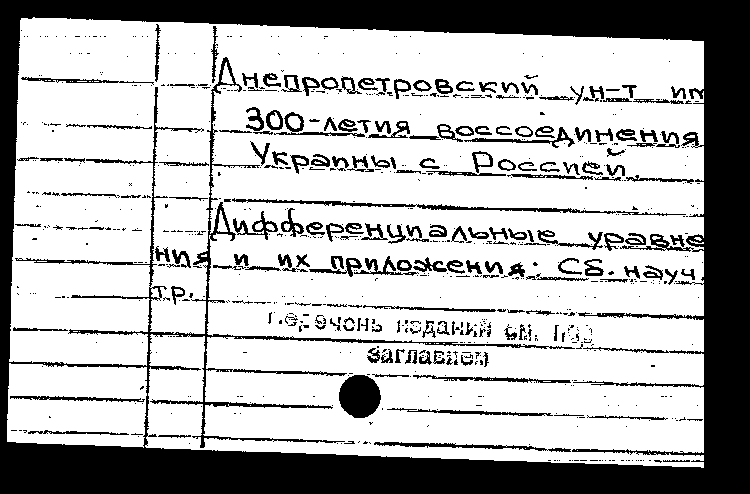 Днепропетровский ун-т им
300-летия воссоединения
Украины с Россией.
Дифференциальные уравне
ния и их приложения: Сб. науч.
тр.
Перечень изданий см. под
заглавием